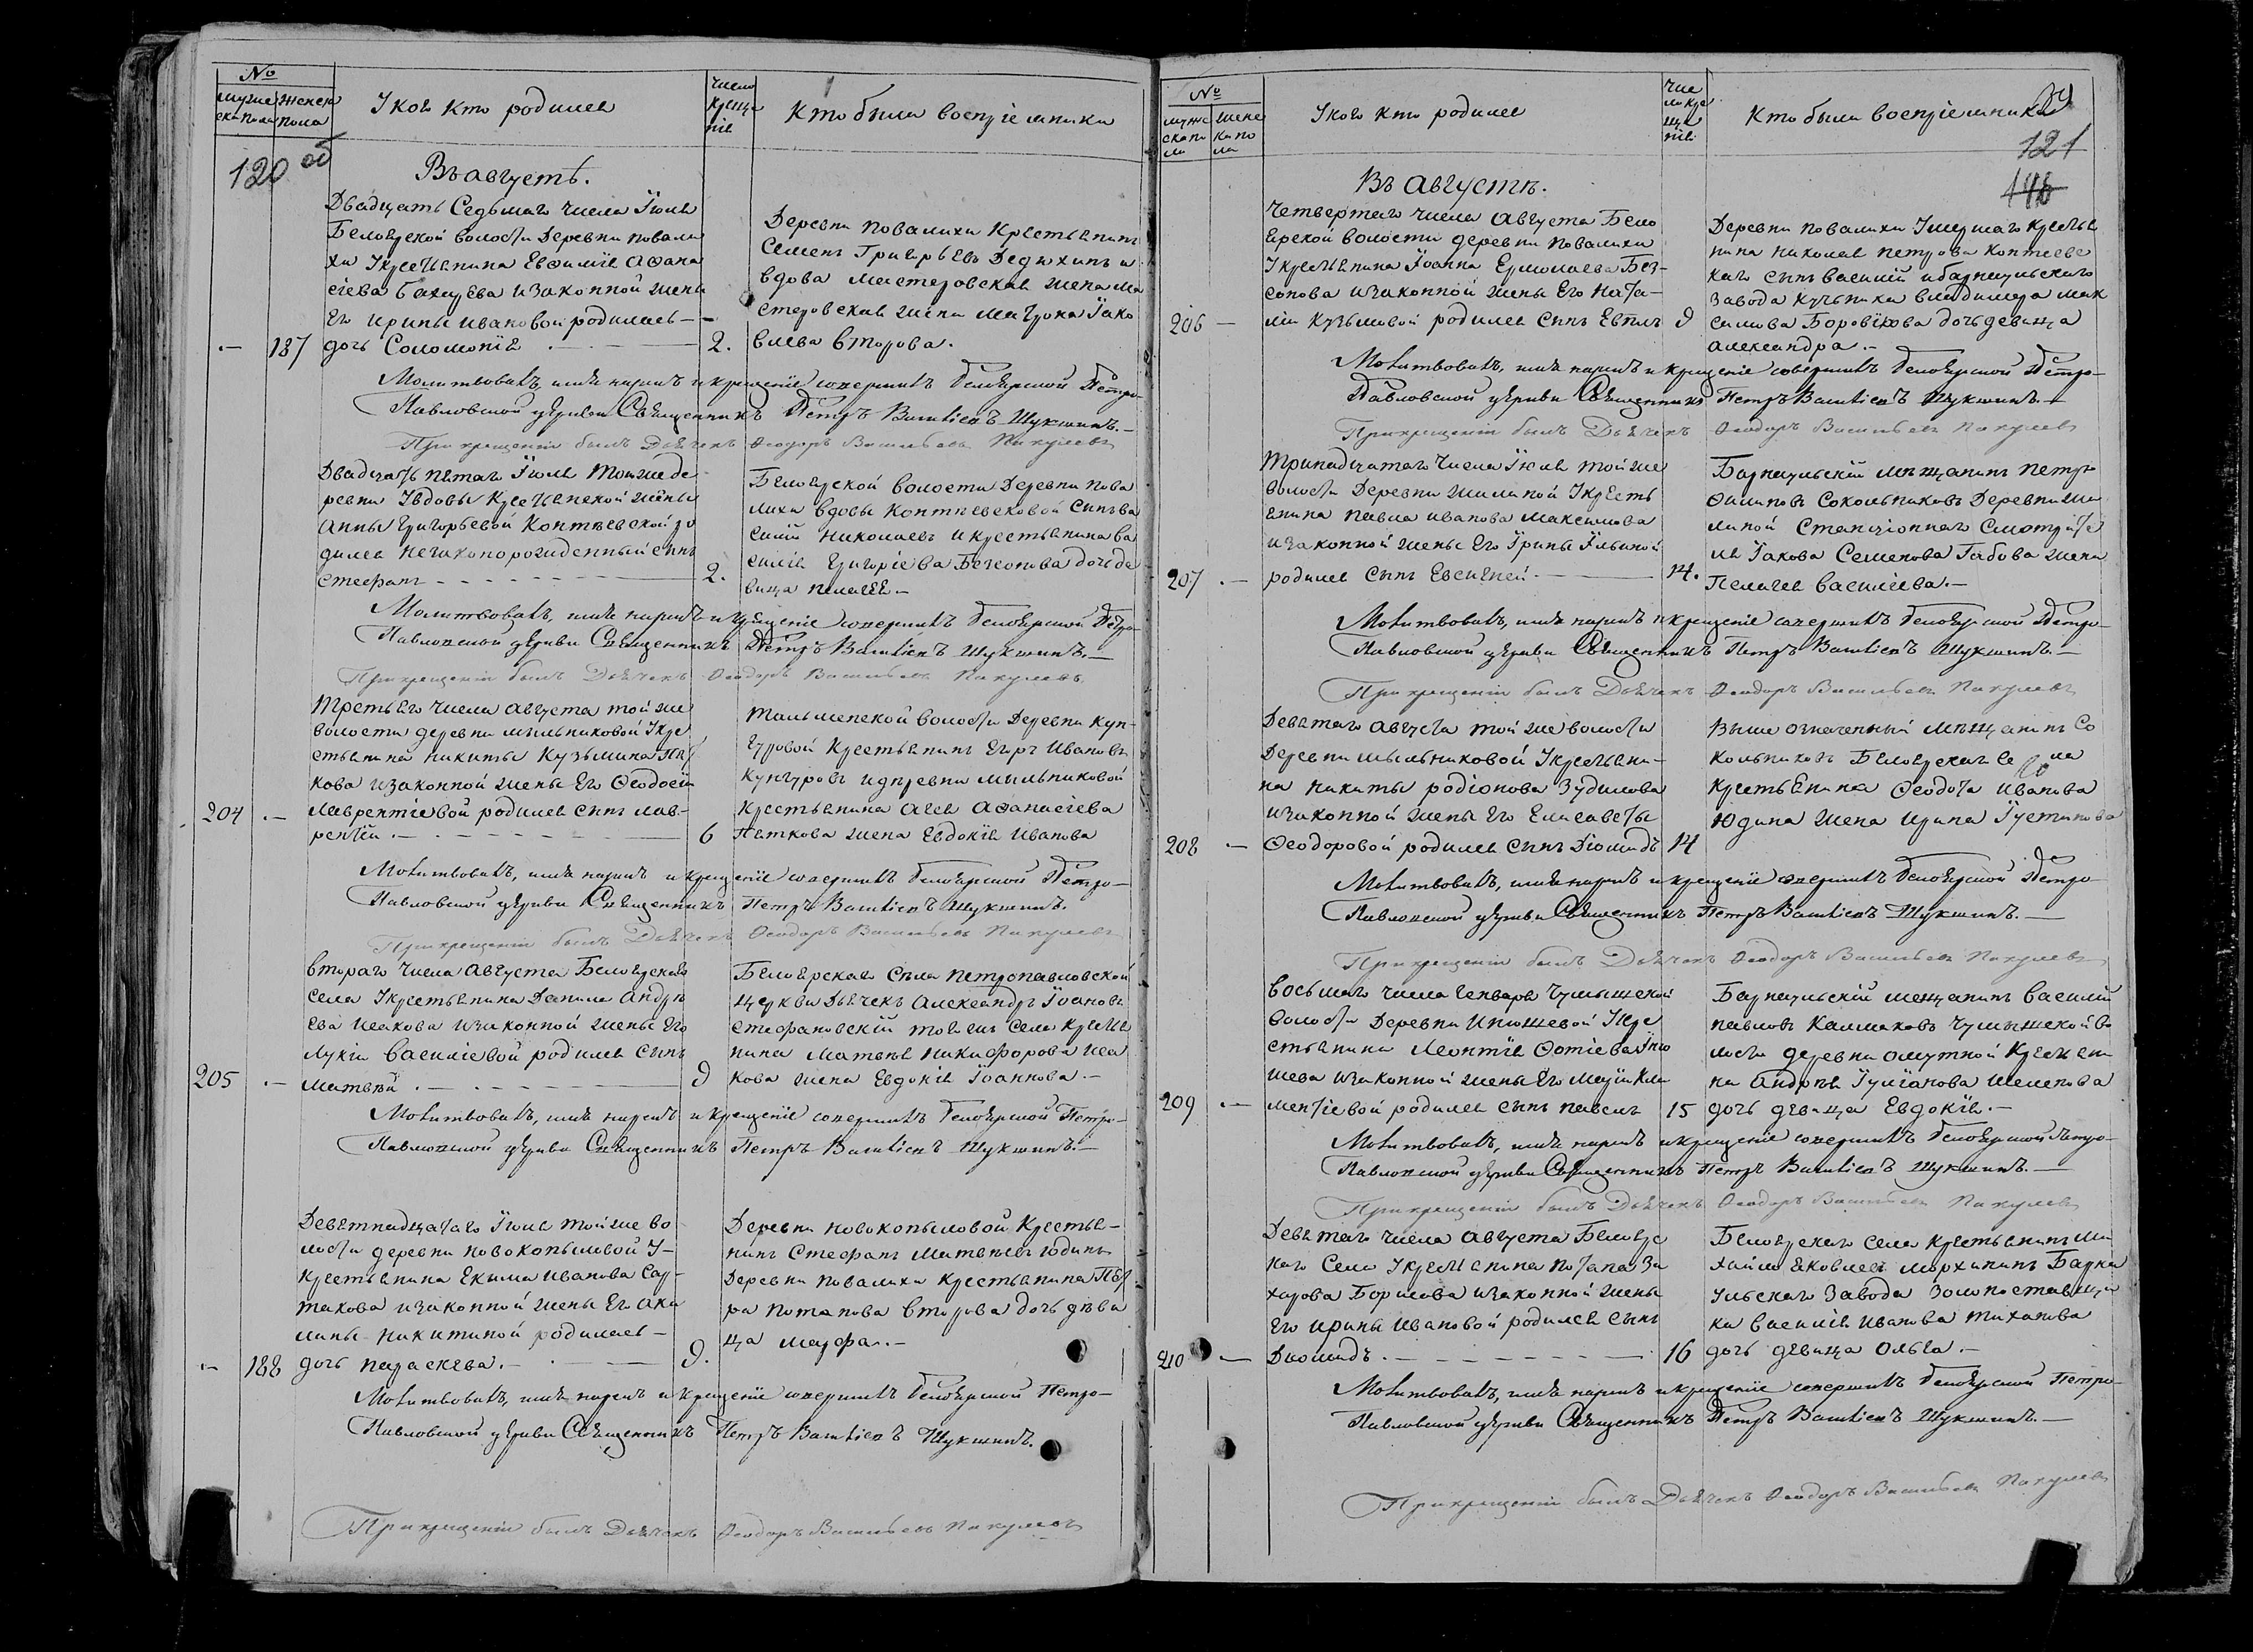 №
мужескапола
женскпола
У кого кто родился
число крещенія
Кто были воспріемники
120 об
Въ августѣ.
Двадцать Седьмаго числа Іюля
Белоярской волости Деревни повали
хи Укрестьянина Евѳиміа Аѳана
сіева изаконной жены
Его ирины ивановой родилась —
— 187 дочь Соломонія — 2.
Деревни повалихи Крестьянинъ
Семенъ Григорьевъ Дедюхинъ и
вдова мастеровская жена ма
стеровская жена матрона Іако
влева второва.
Молитвовалъ, имя нарекъ и крещеніе совершилъ белоярской Петро-
Павловской церкви Священникъ Петръ Васильевъ Шукшинъ.—
При крещеніи былъ Дьячекъ Ѳеодоръ Васильевъ Пакулевъ
Двадцать пятаго Іюля Тойже де
ревни Увдовы Крестьянской жены
Анны григорьевой Контѣевской ро
дился незаконорожденный сынъ
стефанъ — 2.
Белоярской волости Деревни пова
лихи вдовы контиевсковой Сынъ ва
силій николаевъ и крестьянина ва
силія григоріева Безсонова дочь де
вица пелагея —
Молитвовалъ, имя нарекъ и крещеніе совершилъ белоярской Петро-
Павловской церкви Священникъ Петръ Васильевъ Шукшинъ.—
При крещеніи былъ Дьячекъ Ѳеодоръ Васильевъ Пакулевъ
Третьяго числа августа той же
волости деревни мыльниковой Укре
стьянина никиты Кузьмина Пят
кова изаконной жены Его Ѳеодосіи
204 — лаврентіевой родился сынъ лав-
рентій — 6
тальменской волости Деревни кун-
гуровой Крестьянинъ Егоръ Ивановъ
кунгуровъ идеревни мыльниковой
крестьянина Агея Аѳанасіева
Пяткова жена Евдокія Иванова
Молитвовалъ, имя нарекъ и крещеніе совершилъ белоярской Петро-
Павловской церкви Священникъ Петръ Васильевъ Шукшинъ.
При крещеніи былъ Дьячекъ Ѳеодоръ Васильевъ Пакулевъ
втораго числа Августа Белоярскаго
села Укрестьянина Данила Андре
ева исакова изаконной жены его
Лукіи василіевой родился сынъ
205 — Матвѣй — 9
Белоярскаго Села петропавловской
церкви Дьячекъ Александръ Іоановъ
стефановскій тогожъ села крестья
нина Матвѣя Никифорова иса
кова жена Евдокія Іоаннова —
Молитвовалъ, имя нарекъ и крещеніе совершилъ белоярской Петро-
Павловской церкви Священникъ Петръ Васильевъ Шукшинъ.—
Девятнадцатаго Іюля той же во
лости деревни новокопыловой У-
крестьянина Екима Иванова Сар-
такова изаконной жены Его аку
лины никитиной родилась —
— 188 дочь параскева. — 9.
Деревни новокопыловой крестья-
нинъ Стефанъ Матвѣевъ юдинъ
Деревни повалихи крестьянина Пет
ра потапова второва дочь дѣви
ца марфа. —
Молитвовалъ, имя нарекъ и крещеніе совершилъ белоярской Петро-
Павловской церкви Священникъ Петръ Васильевъ Шукшинъ.
При крещеніи былъ Дьячекъ Ѳеодоръ Васильевъ Пакулевъ
№
мужескапола
женскапола
У кого кто родился
число крещенія
Кто были воспріемники
121
Въ Августѣ.
Четвертаго числа Августа Бело
ярской волости деревни повалихи
Укрестьянина Іоанна Ермолаева Без-
сонова изаконной жены Его ната-
206 — ліи Кузьмовой родился сынъ Евпилъ 9
Деревни повалихи Умершаго крестья
нина николая петрова контеевс
каго сынъ василій ибарнаульскаго
завода купчика владимера мак
симова Боровікова дочь девица
Александра. —
Молитвовалъ, имя нарекъ и крещеніе совершилъ белоярской Петро-
Павловской церкви Священникъ Петръ Васильевъ Шукшинъ. —
При крещеніи былъ Дьячекъ Ѳеодоръ Васильевъ Пакулевъ
тринадцатаго числа Іюля той же
волости Деревни жилиной Укресть
янина павла иванова Максимова
изаконной жены Его Ірины Ильиной
207 — родился сынъ Евсигней — 14.
Барнаульскій мѣщанинъ петръ
Филиповъ Сокольниковъ Деревни жи
линой Станціоннаго смотрите
ля Іакова Семенова Габова жена
Пелагея василіева. —
Молитвовалъ, имя нарекъ и крещеніе совершилъ белоярской Петро-
Павловской церкви Священникъ Петръ Васильевъ Шукшинъ. —
При крещеніи былъ Дьячекъ Ѳеодоръ Васильевъ Пакулевъ
Девятаго августа той же волости
Деревни мыльниковой Укрестьяни-
на никиты родіонова Зудилова
изаконной жены Его Елисаветы
208 — Ѳеодоровой родился сынъ Діомидъ 14
Выше означенный мѣщанинъ со
кольниковъ Белоярскаго села
крестьянина Ѳеодота иванова
Юдина жена ирина Іустинова
Молитвовалъ, имя нарекъ и крещеніе совершилъ белоярской Петро-
Павловской церкви Священникъ Петръ Васильевъ Шукшинъ. —
При крещеніи былъ Дьячекъ Ѳеодоръ Васильевъ Пакулевъ
Восьмаго числа генваря чумышской
волости Деревни Инюшевой Укре
стьянина Леонтія Ѳотіева Иню
шева изаконной жены Его Маріи кли
209 — ментіевой родился сынъ павелъ 15
Барнаульскій мещанинъ василій
павловъ Калмаковъ чумышской во
лости деревни омутной крестьяни
на андрея Іуліанова шеленова
дочь девица Евдокія. —
Молитвовалъ, имя нарекъ и крещеніе совершилъ белоярской Петро-
Павловской церкви Священникъ Петръ Васильевъ Шукшинъ. —
При крещеніи былъ Дьячекъ Ѳеодоръ Васильевъ Пакулевъ
Девятаго числа августа Белоярс
каго Села Укрестьянина потапа За
харова Борисова изаконной жены
его ирины ивановой родился сынъ
210 — Диомидъ. — 16
Белоярскаго села крестьянинъ ми
хайло яковлевъ морхининъ Барна
ульскаго завода золопоставщи
ка василія иванова тиханова
дочь девица Ольга. —
Молитвовалъ, имя нарекъ и крещеніе совершилъ белоярской Петро-
Павловской церкви Священникъ Петръ Васильевъ Шукшинъ. —
При крещеніи былъ Дьячекъ Ѳеодоръ Васильевъ Пакулевъ